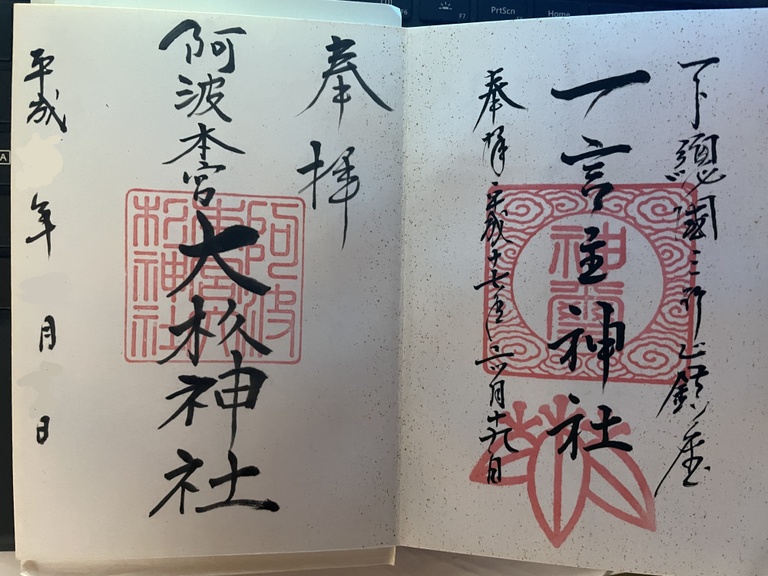 PrtScn
Home
F7
A
下總國三 鎮座
一言主神社
奉拝 平成 七年 月十九日
奉拝
阿波本宮
大杉神社
平成 年 月 日
阿波
本宮大
杉神社